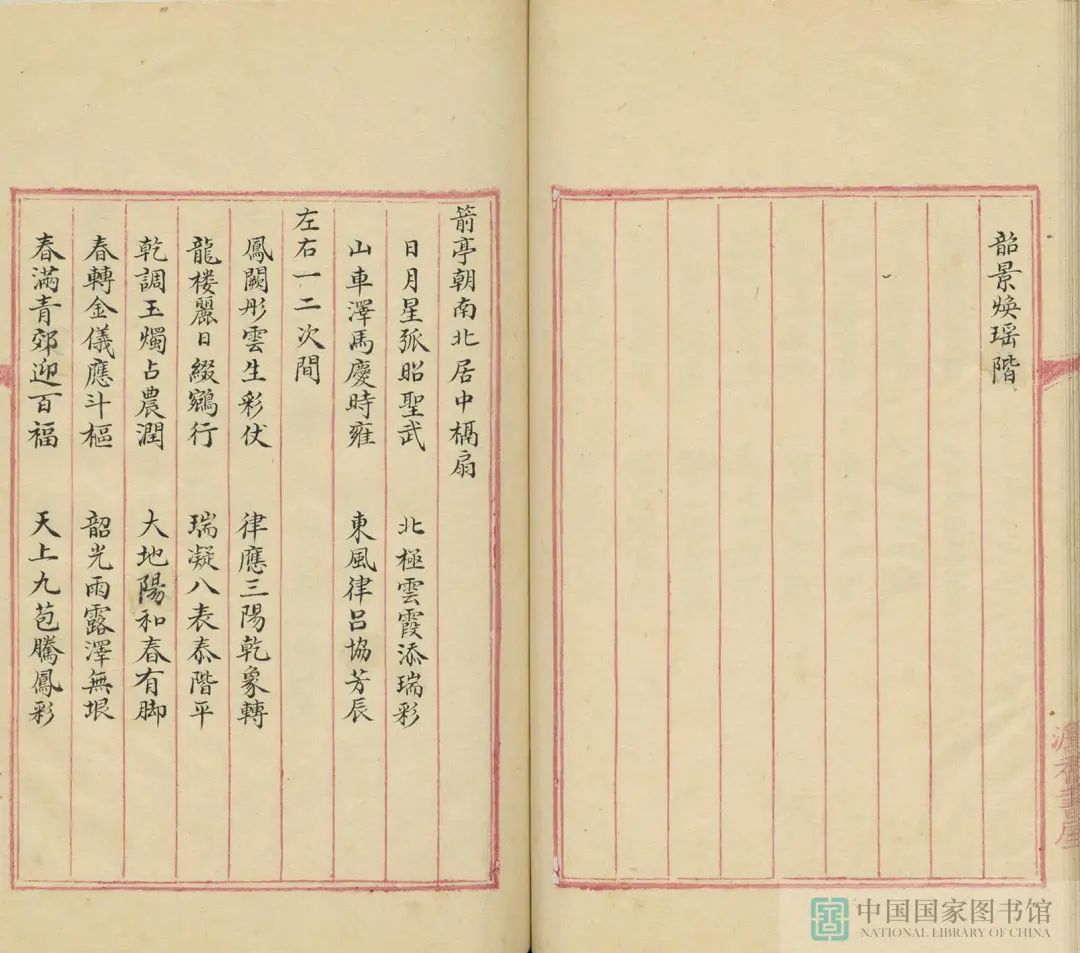 韶景煥瑶階
箭亭朝南北居中槅扇
日月星弧昭聖武 北極雲霞添瑞彩
山車澤馬慶時雍 東風律呂協芳辰
左右一二次間
鳳闕彤雲生彩仗 律應三陽乾象轉
龍楼麗日綴鵷行 瑞凝八表泰階平
乾調玉燭占農潤 大地陽和春有脚
春轉金儀應斗樞 韶光雨露澤無垠
春滿青郊迎百福 天上九苞騰鳳彩
中国国家图书馆
NATIONAL LIBRARY OF CHINA